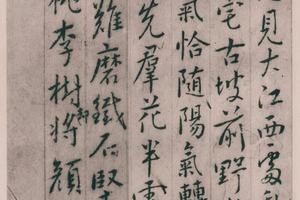 見大江西
宅古坡前野
氣恰隨陽氣轉
先羣花半
難磨鐵石堅
桃李樹將顏